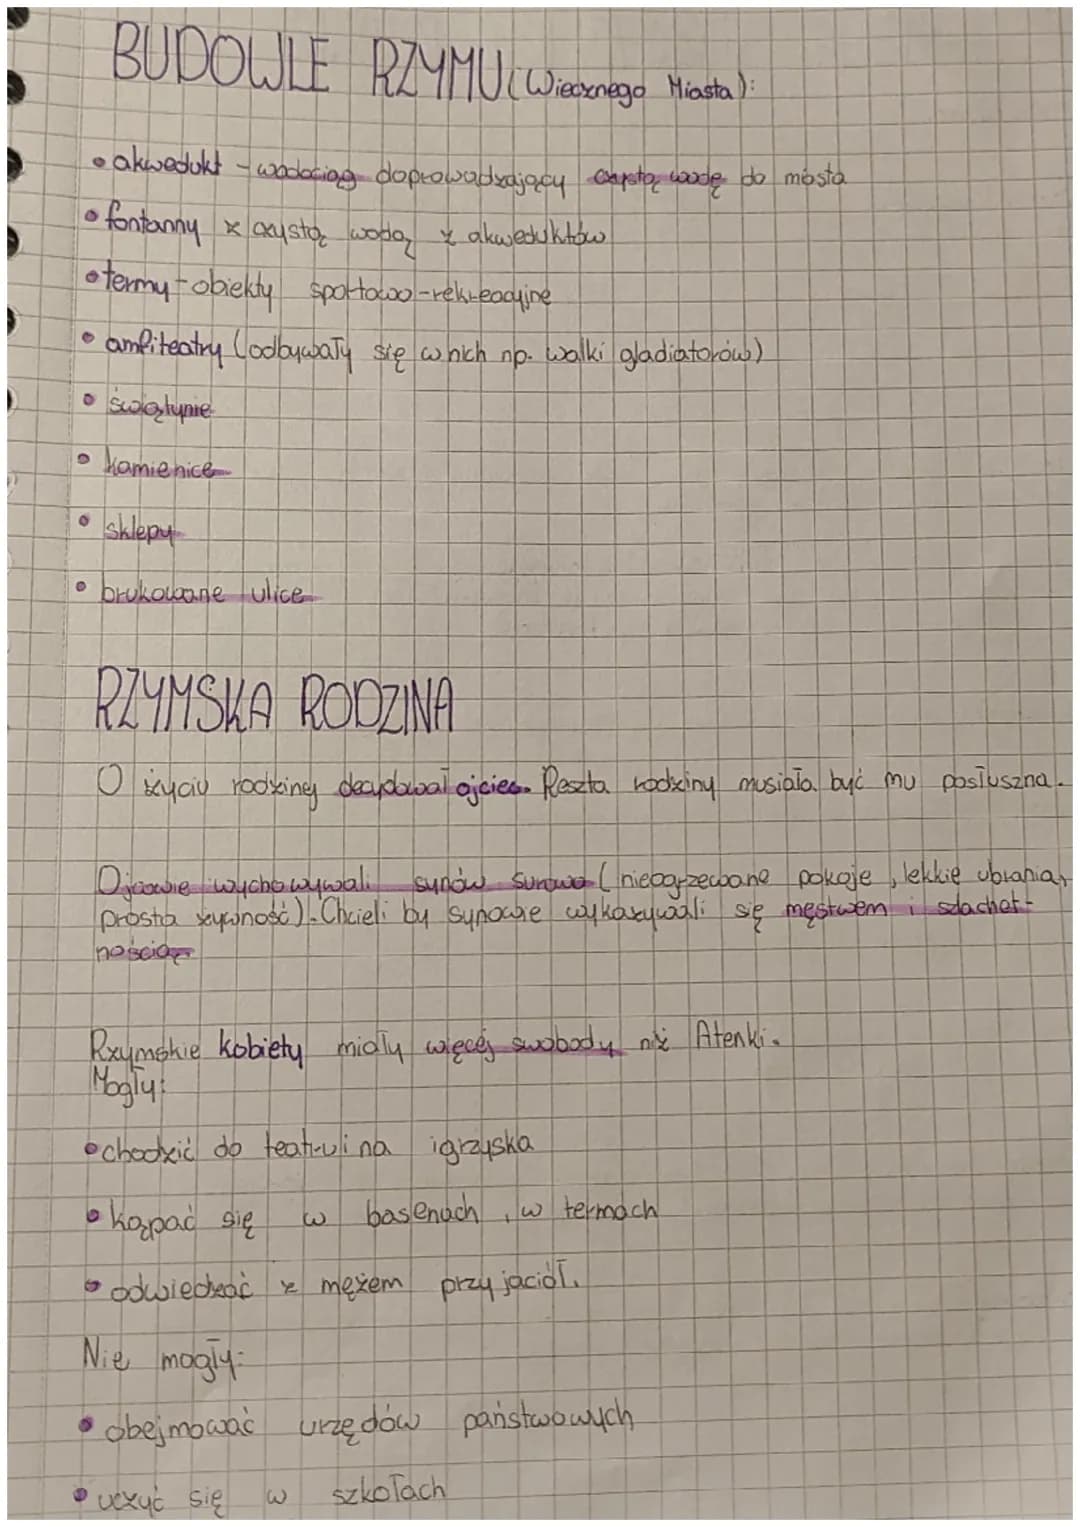 BUDOWLE RZYMU (Wiecznego Miasta):
• akwedukt - wodociąg doprowadzający czystą wodę do miasta
• fontanny z czystą wodą z akweduktów
• termy - obiekty sportowo-rekreacyjne
• amfiteatry (odbywały się w nich np. walki gladiatorów)
• świątynie
• kamienice
• sklepy
• brukowane ulice
RZYMSKA RODZINA
O życiu rodziney decydował ojciec. Reszta rodziny musiała być mu posłuszna.
Ojcowie wychowywali synów surowo (nieogrzewane pokoje, lekkie ubrania,
prosta żywność). Chcieli by synowie wykazywali się męstwem i szlachet-
nością
Rzymskie kobiety miały więcej swobody niż Atenki.
Mogły:
• chodzić do teatru i na igrzyska
• kąpać się w basenach, w termach
• odwiedzać z mężem przyjaciół.
Nie mogły:
• obejmować urzędów państwowych
• uczyć się w szkołach